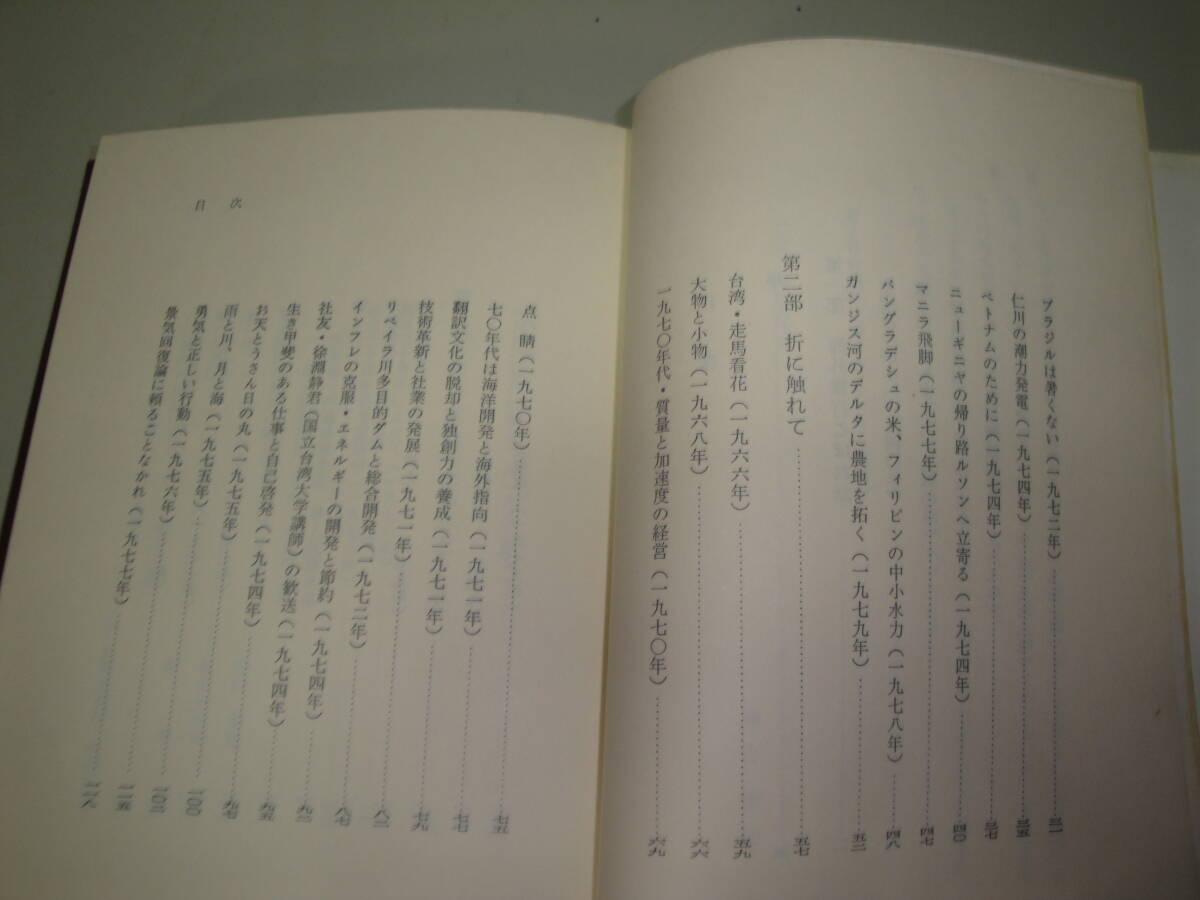 ブラジルは暑くない(一九七二年)…………三一
仁川の潮力発電(一九七四年)…………三五
ベトナムのために(一九七四年)…………三七
ニューギニヤの帰り路ルソンへ立寄る(一九七四年)…………四〇
マニラ飛脚(一九七七年)…………四七
バングラデシュの米、フィリピンの中小水力(一九七八年)…………四八
ガンジス河のデルタに農地を拓く(一九七九年)…………五二
第二部 折に触れて…………五七
台湾・走馬看花(一九六六年)…………五九
大物と小物(一九六八年)…………六六
一九七〇年代・質量と加速度の経営(一九七〇年)…………六九
目次
点睛(一九七〇年)…………七五
七〇年代は海洋開発と海外指向(一九七一年)…………七七
翻訳文化の脱却と独創力の養成(一九七一年)…………七九
技術革新と社業の発展(一九七一年)…………八二
リベイラ川多目的ダムと総合開発(一九七二年)…………八七
インフレの克服・エネルギーの開発と節約(一九七四年)…………九二
社友・徐淵静君(国立台湾大学講師)の歓送(一九七四年)…………九五
生き甲斐のある仕事と自己啓発(一九七四年)…………九七
お天とうさん日の丸(一九七五年)…………一〇〇
雨と川、月と海(一九七五年)…………一〇二
勇気と正しい行動(一九七六年)…………一一五
景気回復論に頼ることなかれ(一九七七年)…………一一八